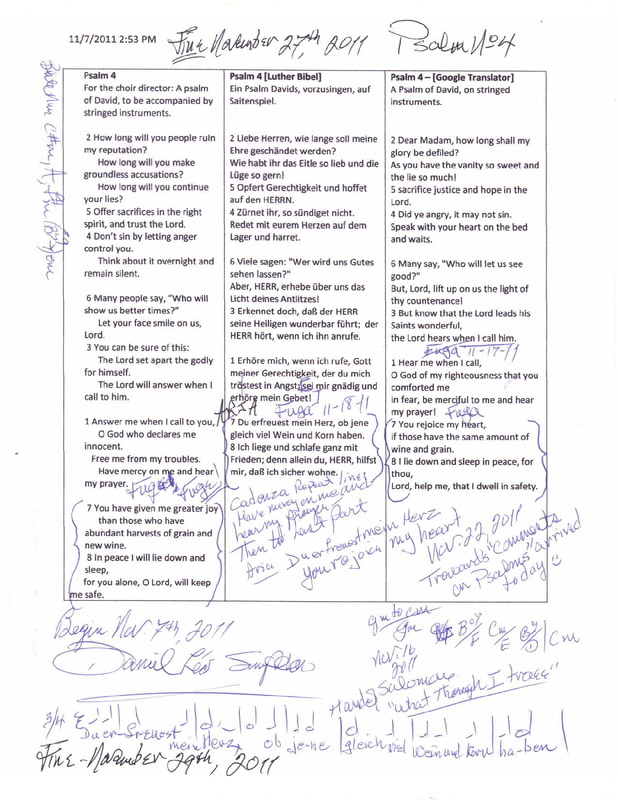 11/7/2011 2:53 PM
Fine November 27,th 2011
Psalm No 4
Psalm 4
For the choir director: A psalm
of David, to be accompanied by
stringed instruments.
2 How long will you people ruin
my reputation?
How long will you make
groundless accusations?
How long will you continue
your lies?
5 Offer sacrifices in the right
spirit, and trust the Lord.
4 Don't sin by letting anger
control you.
Think about it overnight and
remain silent.
6 Many people say, "Who will
show us better times?"
Let your face smile on us,
Lord.
3 You can be sure of this:
The Lord set apart the godly
for himself.
The Lord will answer when I
call to him.
1 Answer me when I call to you,
O God who declares me
innocent.
Free me from my troubles.
Have mercy on me and hear
my prayer.
Fuga Fuga
7 You have given me greater joy
than those who have
abundant harvests of grain and
new wine.
8 In peace I will lie down and
sleep,
for you alone, O Lord, will keep
me safe.
Psalm 4 [Luther Bibel]
Ein Psalm Davids, vorzusingen, auf
Saitenspiel.
2 Liebe Herren, wie lange soll meine
Ehre geschändet werden?
Wie habt ihr das Eitle so lieb und die
Lüge so gern!
5 Opfert Gerechtigkeit und hoffet
auf den HERRN.
4 Zürnet ihr, so sündiget nicht.
Redet mit eurem Herzen auf dem
Lager und harret.
6 Viele sagen: "Wer wird uns Gutes
sehen lassen?"
Aber, HERR, erhebe über uns das
Licht deines Antlitzes!
3 Erkennet doch, daß der HERR
seine Heiligen wunderbar führt; der
HERR hört, wenn ich ihn anrufe.
1 Erhöre mich, wenn ich rufe, Gott
meiner Gerechtigkeit, der du mich
tröstest in Angst; sei mir gnädig und
erhöre mein Gebet!
ARIA
Fuga 11-18-11
7 Du erfreuest mein Herz, ob jene
gleich viel Wein und Korn haben.
8 Ich liege und schlafe ganz mit
Frieden; denn allein du, HERR, hilfst
mir, daß ich sicher wohne.
Cadenza Repeat line
Have mercy on me and
hear my Prayer
Then to Last Part
Aria Du erfreuest mein Herz
You rejoice my heart
Psalm 4 – [Google Translator]
A Psalm of David, on stringed
instruments.
2 Dear Madam, how long shall my
glory be defiled?
As you have the vanity so sweet and
the lie so much!
5 sacrifice justice and hope in the
Lord.
4 Did ye angry, it may not sin.
Speak with your heart on the bed
and waits.
6 Many say, "Who will let us see
good?"
But, Lord, lift up on us the light of
thy countenance!
3 But know that the Lord leads his
Saints wonderful,
the Lord hears when I call him.
Fuga 11-17-11
1 Hear me when I call,
O God of my righteousness that you
comforted me
in fear, be merciful to me and hear
my prayer!
Fuga
7 You rejoice my heart,
if those have the same amount of
wine and grain.
8 I lie down and sleep in peace, for
thou,
Lord, help me, that I dwell in safety.
Nov. 22, 2011
Troward's "Comments
on Psalms" arrived
today
Begin Nov. 7th, 2011
Daniel Léo Simpson
gm to cm
gm
Cm
Cm
Nov. 16
2011
Handel Salomon
"What Though I trace"
3/4
Du er-freuest mein Herz, ob je-ne gleich viel Wein und Korn ha-ben
Fine - November 29th, 2011